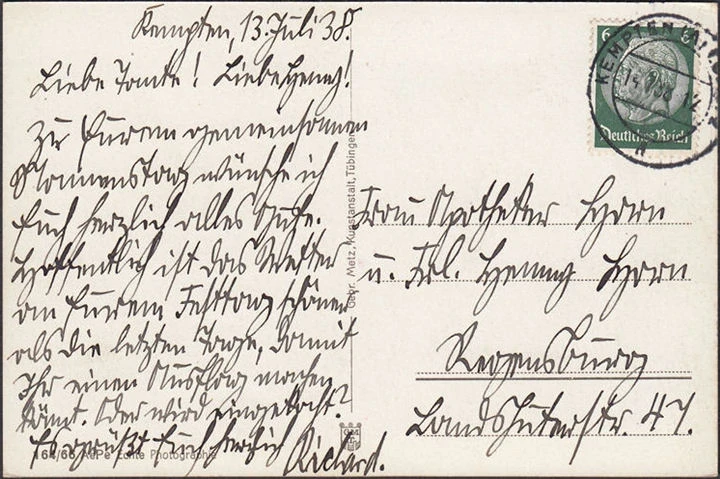 Kempten, 13. Juli 38.
Liebe Tante! Liebe Henny!
Zu Eurem gemeinsamen
Namenstag wünsche ich
Euch herzlich alles Gute.
Hoffentlich ist das Wetter
an Eurem Festtag schöner
als die letzten Tage, damit
Ihr einen Ausflug machen
könnt. Oder wird eingekocht?
Es grüßt Euch herzlich
Richard.
164/66 Echte Photographie
Gebr. Metz, Kunstanstalt, Tübingen
6
Deutsches Reich
KEMPTEN
Frau Apotheker Horn
u. Frl. Henny Horn
Regensburg
Landshuterstr. 47.